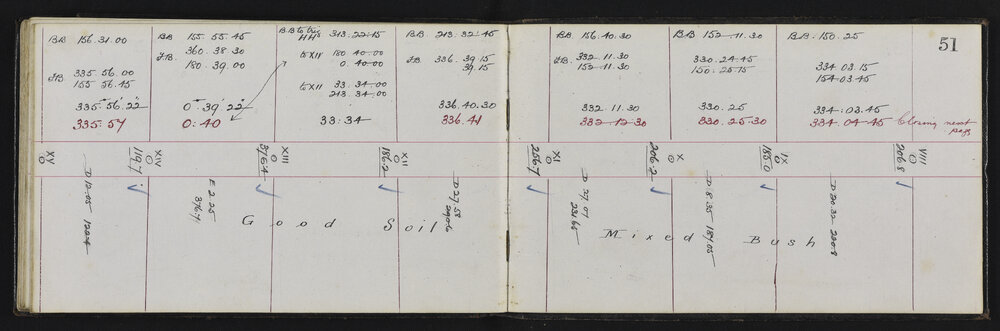 51
BB 156.31.00
FB. 335.56.00
155.56.45
335°56'22"
335:57
BB 155.55.45
FB. 360.38.30
180.39.00
0°39'22"
0:40
BB to trig
HHs 313.22.15
to XII 180.40.00
0.40.00
to XII 33.34.00
213.34.00
33:34
BB. 213.32.45
FB 336.39.15
39.15
336.40.30
336.41
BB 156.40.30
FB. 332.11.30
152.11.30
332.11.30
332.12.30
BB 152.11.30
330.24.45
150.25.15
330.25
330.25.30
BB. 150.25
334.03.15
154.03.45
334:03.45
334.04.45 Closing next
page
XV
XIV
119.7
XIII
376.4
XII
186.2
XI
256.7
X
206.2
IX
185.0
VIII
206.8
D 12.05
E 2.25
376.4
D 27.58
D 27.07
D 8.35
D 20.32
Good Soil
Mixed Bush